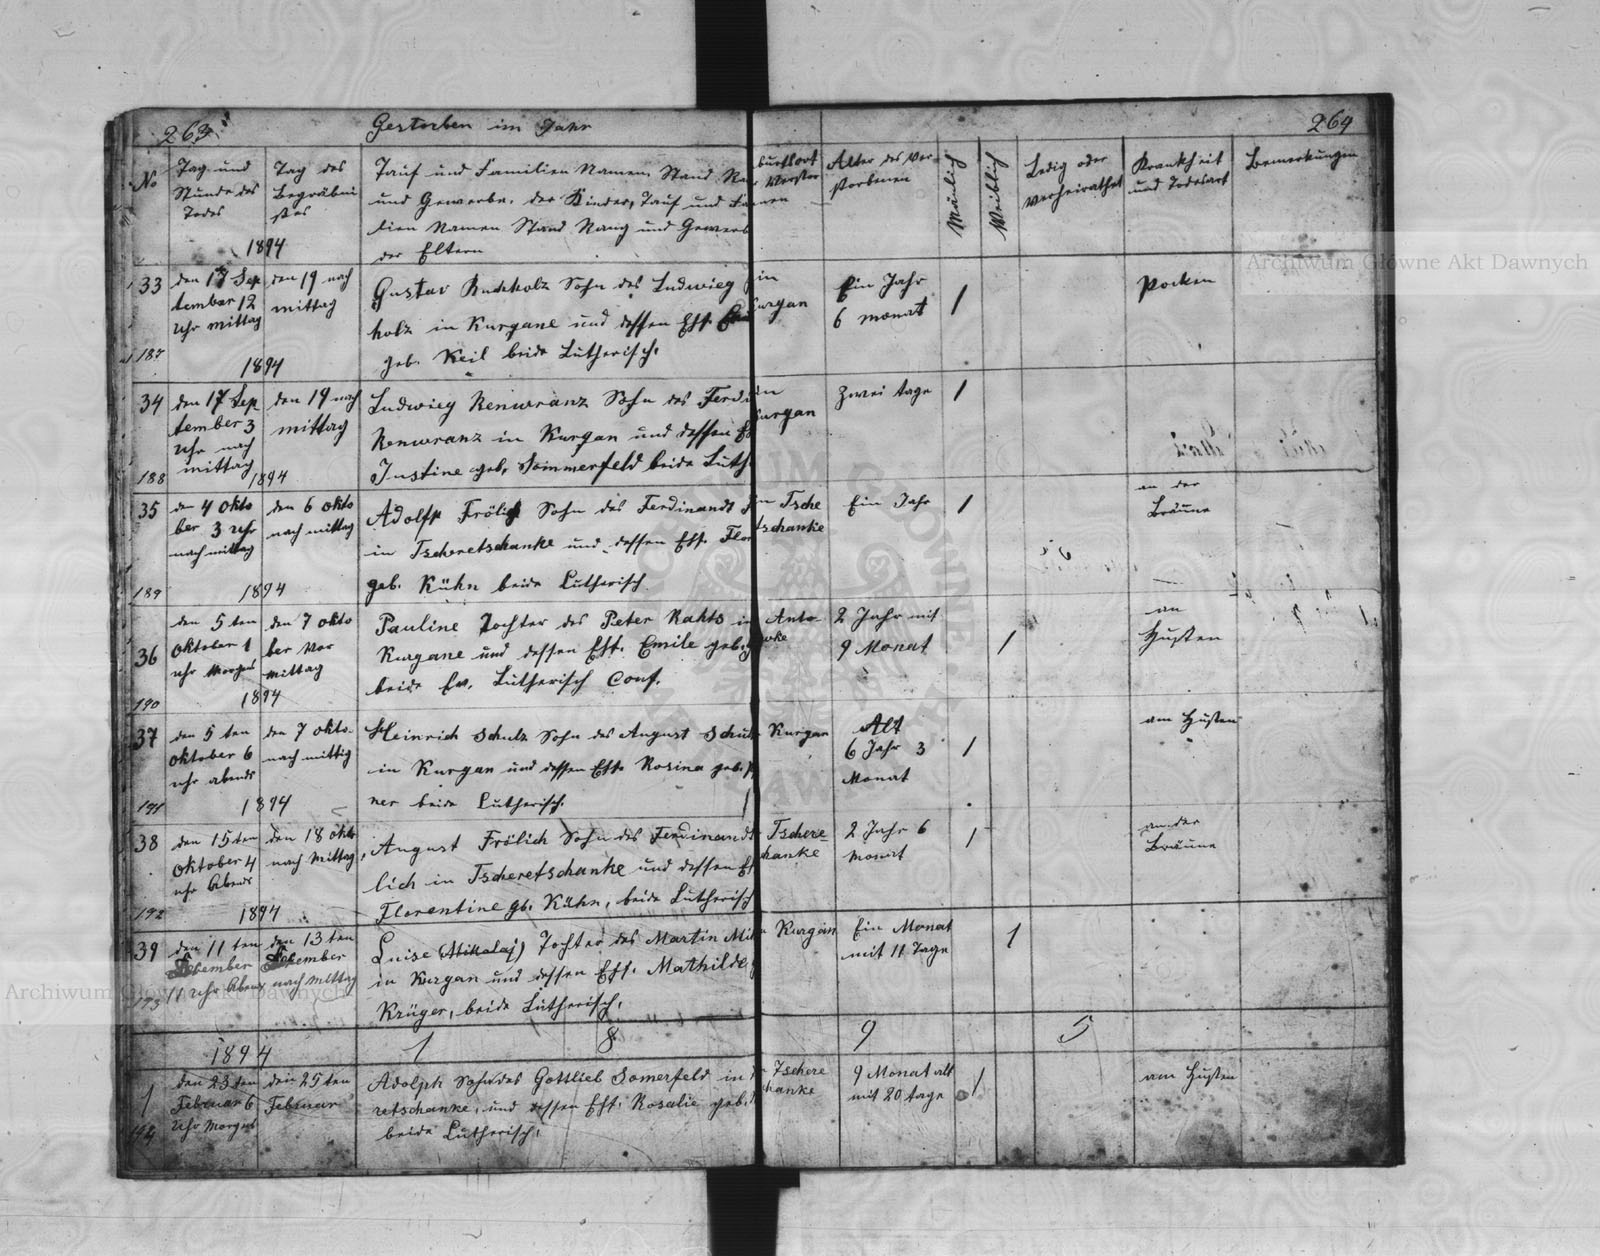 263.
Gestorben im Jahr
264
No
Tag und
Stunde des
Todes
Tag des
Begräbni
ßes
1894
Tauf und Familien Namen Stand
und Gewerbe, der Kinder, Tauf und Fa
lien Namen Stand Rang und Gewerb
der Eltern
burtsort
Verstor
nen
Alter des Ver-
storbenen
Mänlich
Weiblich
Ledig oder
Verheirathet
Krankheit
und Todesart
Bemerkungen
33
187
den 17 Sep
tember 12
Uhr Mittag
den 19 nach
mittag
1894
Gustav Buchholz Sohn des Ludwieg
holz in Kurgane und dessen Ehf.
geb. Keil beide Lutherisch.
in
Kurgan
Ein Jahr
6 Monat
1
Pocken
34
188
den 17 Sep
tember 3
Uhr nach
mittag
den 19 nach
mittag
1894
Ludwieg Renwranz Sohn des Ferdi
Renwranz in Kurgan und dessen E
Justine geb. Sommerfeld beide Luth
in
Kurgan
Zwei tage
1
35
189
den 4 Okto
ber 3 Uhr
nach mittag
den 6 Okto
nach mittag
1894
Adolph Frölich Sohn des Ferdinandt
in Tscheretschanke und dessen Ehf. Flor
geb. Kühn beide Lutherisch
in Tsche
tschanke
Ein Jahr
1
an der
Bräune
36
190
den 5 ten
Oktober 1
Uhr Morgens
den 7 Okto
ber Vor
mittag
1894
Pauline Tochter des Peter Rahts in
Kurgane und dessen Ehf. Emile geb.
beide Ev. Lutherisch Conf.
Anto-
wke
2 Jahr mit
9 Monat
1
an
Husten
37
191
den 5 ten
Oktober 6
Uhr abends
den 7 Okto.
nach mittig
1894
Heinrich Schulz Sohn des August Schul
in Kurgan und dessen Ehf. Rosina geb.
ner beide Lutherisch.
Kurgan
Alt
6 Jahr 3
Monat
1
am Husten
38
192
den 15 ten
Oktober 4
Uhr Abends
den 18 Okto
nach Mittag
1894
August Frölich Sohn des Ferdinandt
lich in Tscheretschanke und dessen Ehf
Florentine gb. Kühn, beide Lutherisch
Tschere-
chanke
2 Jahr 6
Monat
1
an der
Bräune
39
193
den 11 ten
Dezember
11 Uhr Abens
den 13 ten
Dezember
nach Mittag
Luise (Mikolaj) Tochter des Martin Mik
in Kurgan und dessen Ehf. Mathilde
Krüger, beide Lutherisch.
Kurgan
Ein Monat
mit 11 Tage
1
1894
1
8
9
5
1
194
den 23 ten
Februar 6
Uhr Morgens
den 25 ten
Februar
Adolph Sohn des Gottlieb Somerfeld in
retschanke, und dessen Ehf. Rosalie geb.
beide Lutherisch.
Tschere
chanke
9 Monat alt
mit 20 tage
1
am Husten
Archiwum Główne Akt Dawnych
Archiwum Główne Akt Dawnych